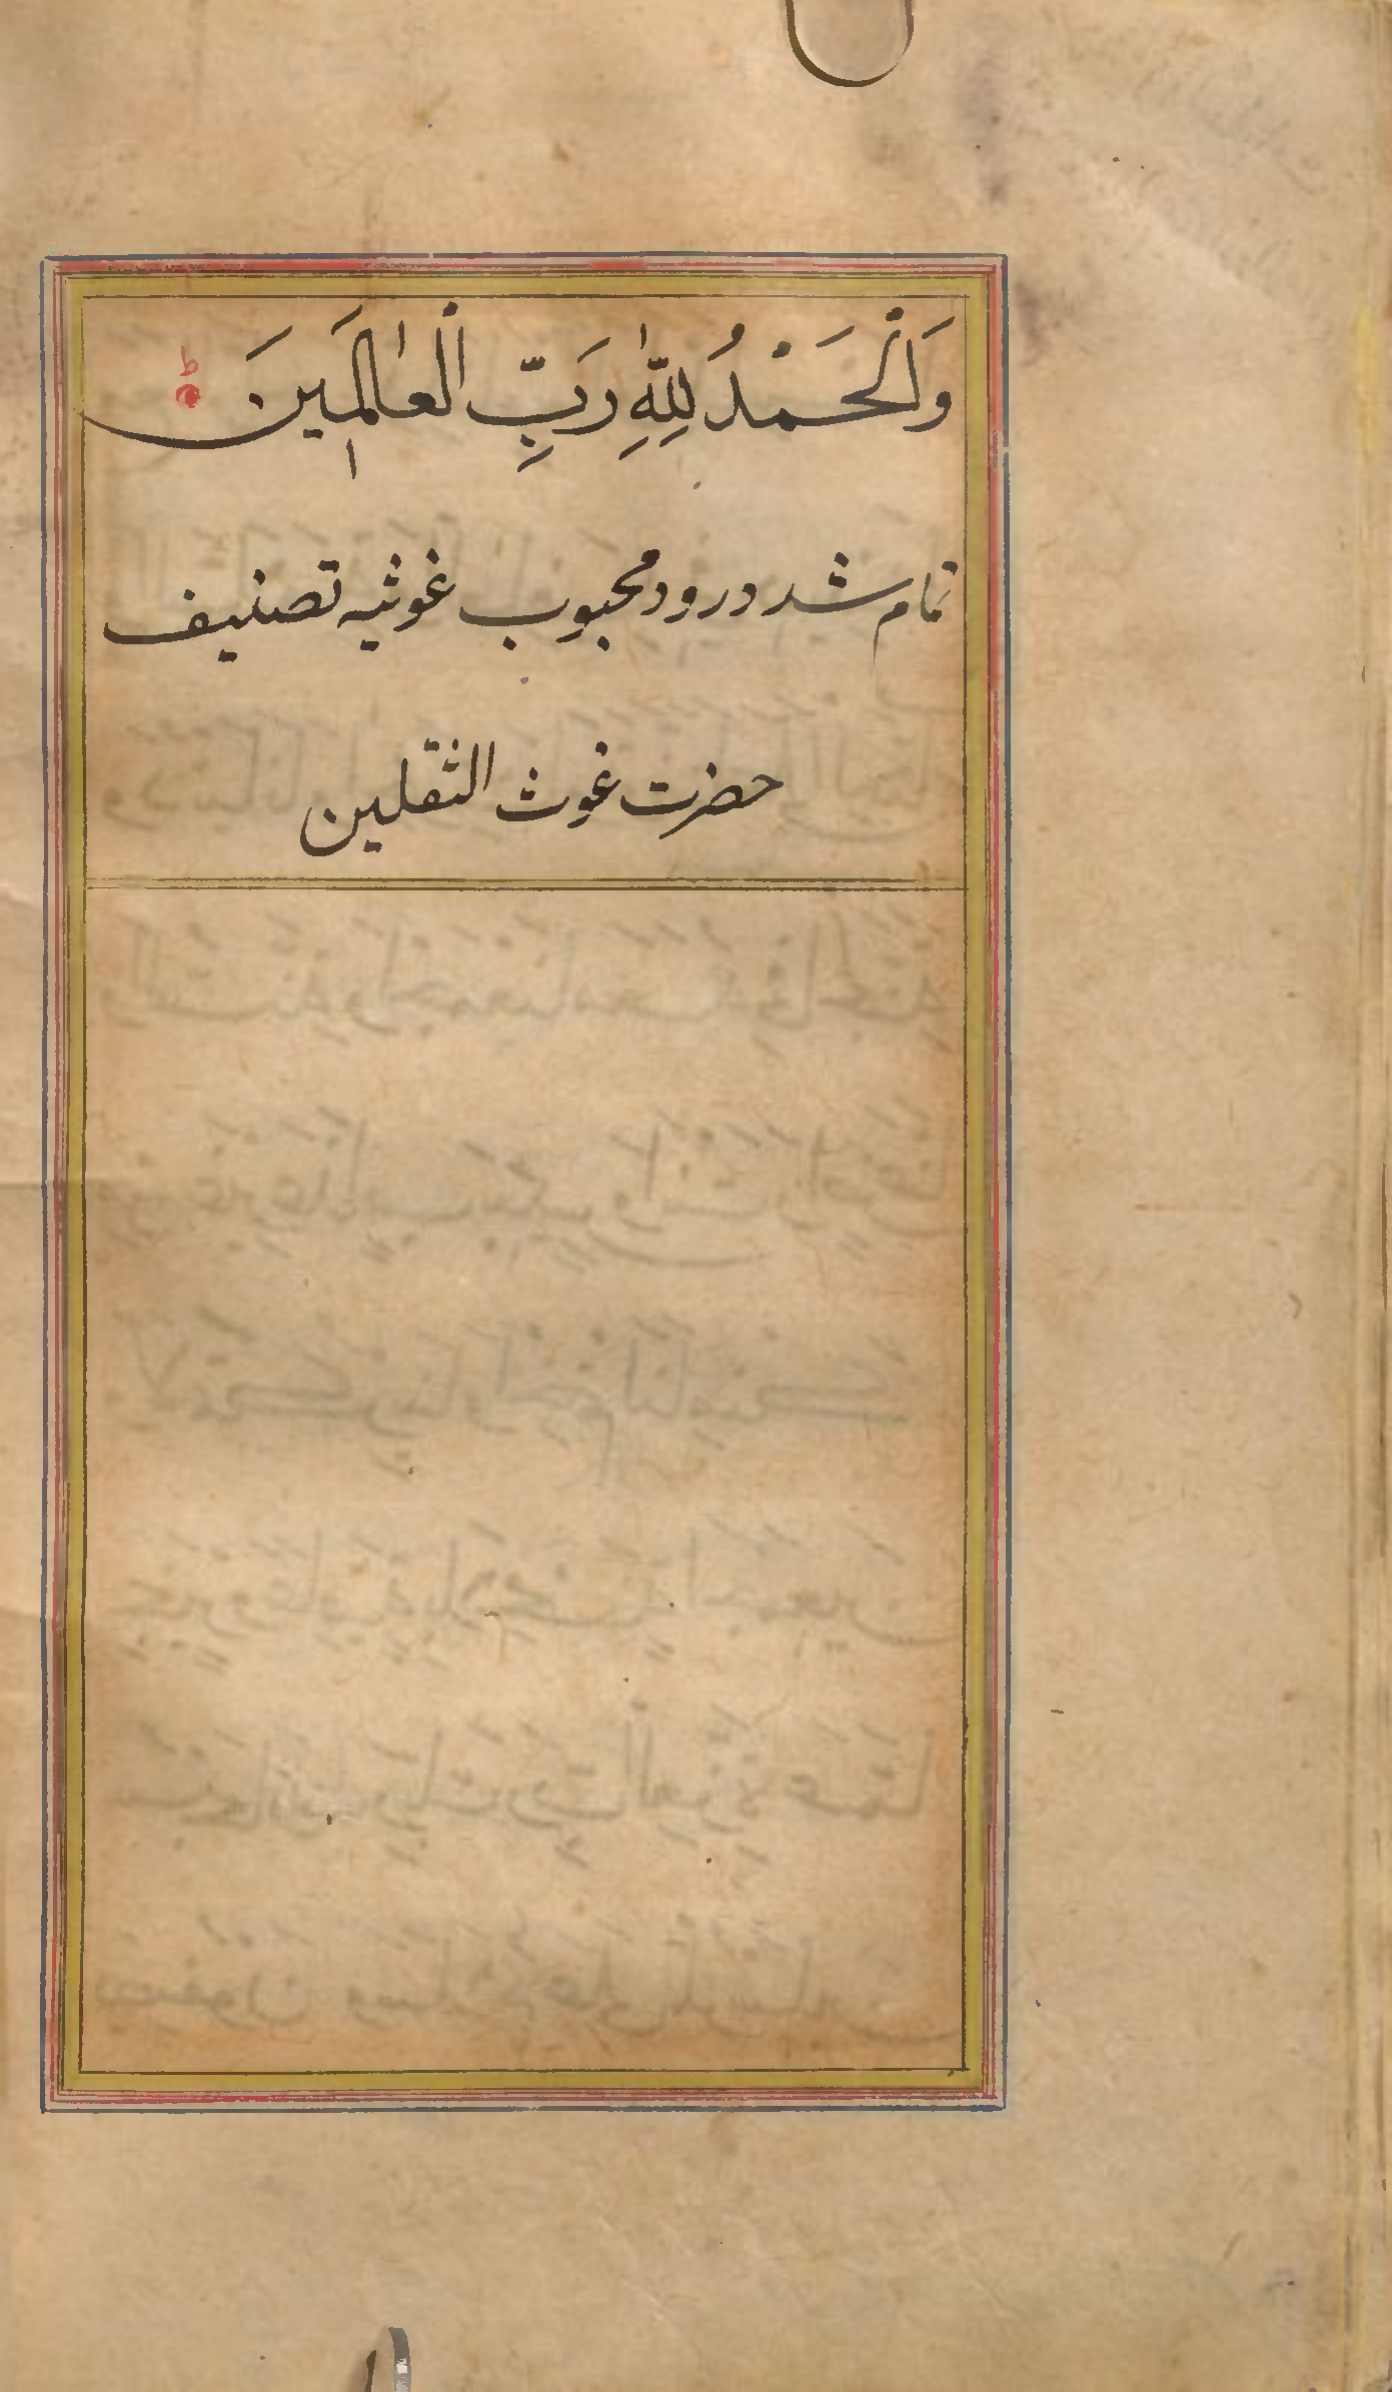 وَالْحَمْدُ لِلّٰهِ رَبِّ الْعٰالَمِينَ ط
تمام شد درود محبوب غوثیه تصنیف
حضرت غوث الثقلین